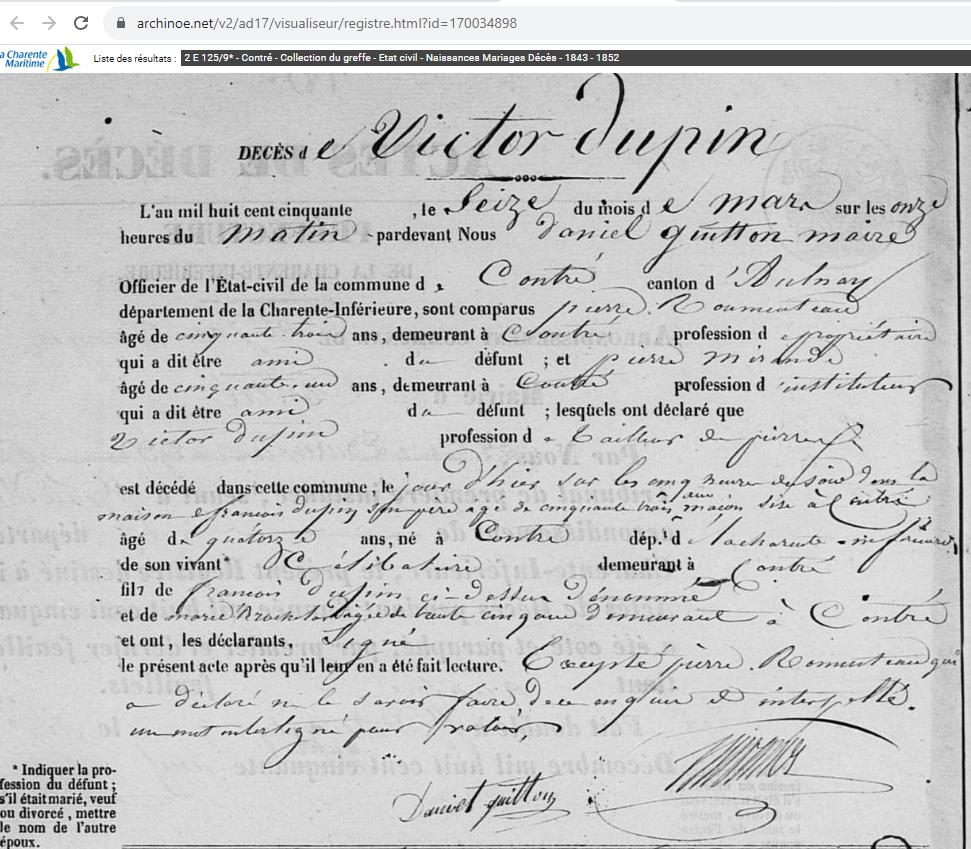 archinoe.net/v2/ad17/visualiseur/registre.html?id=170034898
a Charente
Maritime
Liste des résultats : 2 E 125/9* - Contré - Collection du greffe - Etat civil - Naissances Mariages Décès - 1843 - 1852
DECÈS d e Victor dupin
L'an mil huit cent cinquante , le Seize du mois d e mars sur les onze
heures du matin pardevant Nous daniel guitton maire
Officier de l'État-civil de la commune d e Contré canton d'Aulnay
département de la Charente-Inférieure, sont comparus pierre Roumeteau
âgé de cinquante trois ans, demeurant à Contré profession d propriétaire
qui a dit être ami du défunt ; et pierre
âgé de cinquante un ans, demeurant à Contré profession d instituteur
qui a dit être ami du défunt ; lesquels ont déclaré que
Victor dupin profession d e tailleur de pierre
est décédé dans cette commune, le jour d'hier sur les cinq heures du soir dans la
maison françois dupin son père agé de cinquante trois ans maçon sise à Contré
âgé de quatorze ans, né à Contré dép.t d la charente inferieure
de son vivant Célibataire demeurant à Contré
fils de francois dupin ci-dessus dénommé
et de marie agée de cinq ans demeurant à Contré
et ont, les déclarants, signé
le présent acte après qu'il leur en a été fait lecture. Excepté pierre Roumeteau qui
a déclaré ne le savoir faire de ce enquis et interpellé.
un mot interligné
* Indiquer la pro-
fession du défunt ;
s'il était marié, veuf
ou divorcé, mettre
le nom de l'autre
époux.
Daniel guitton